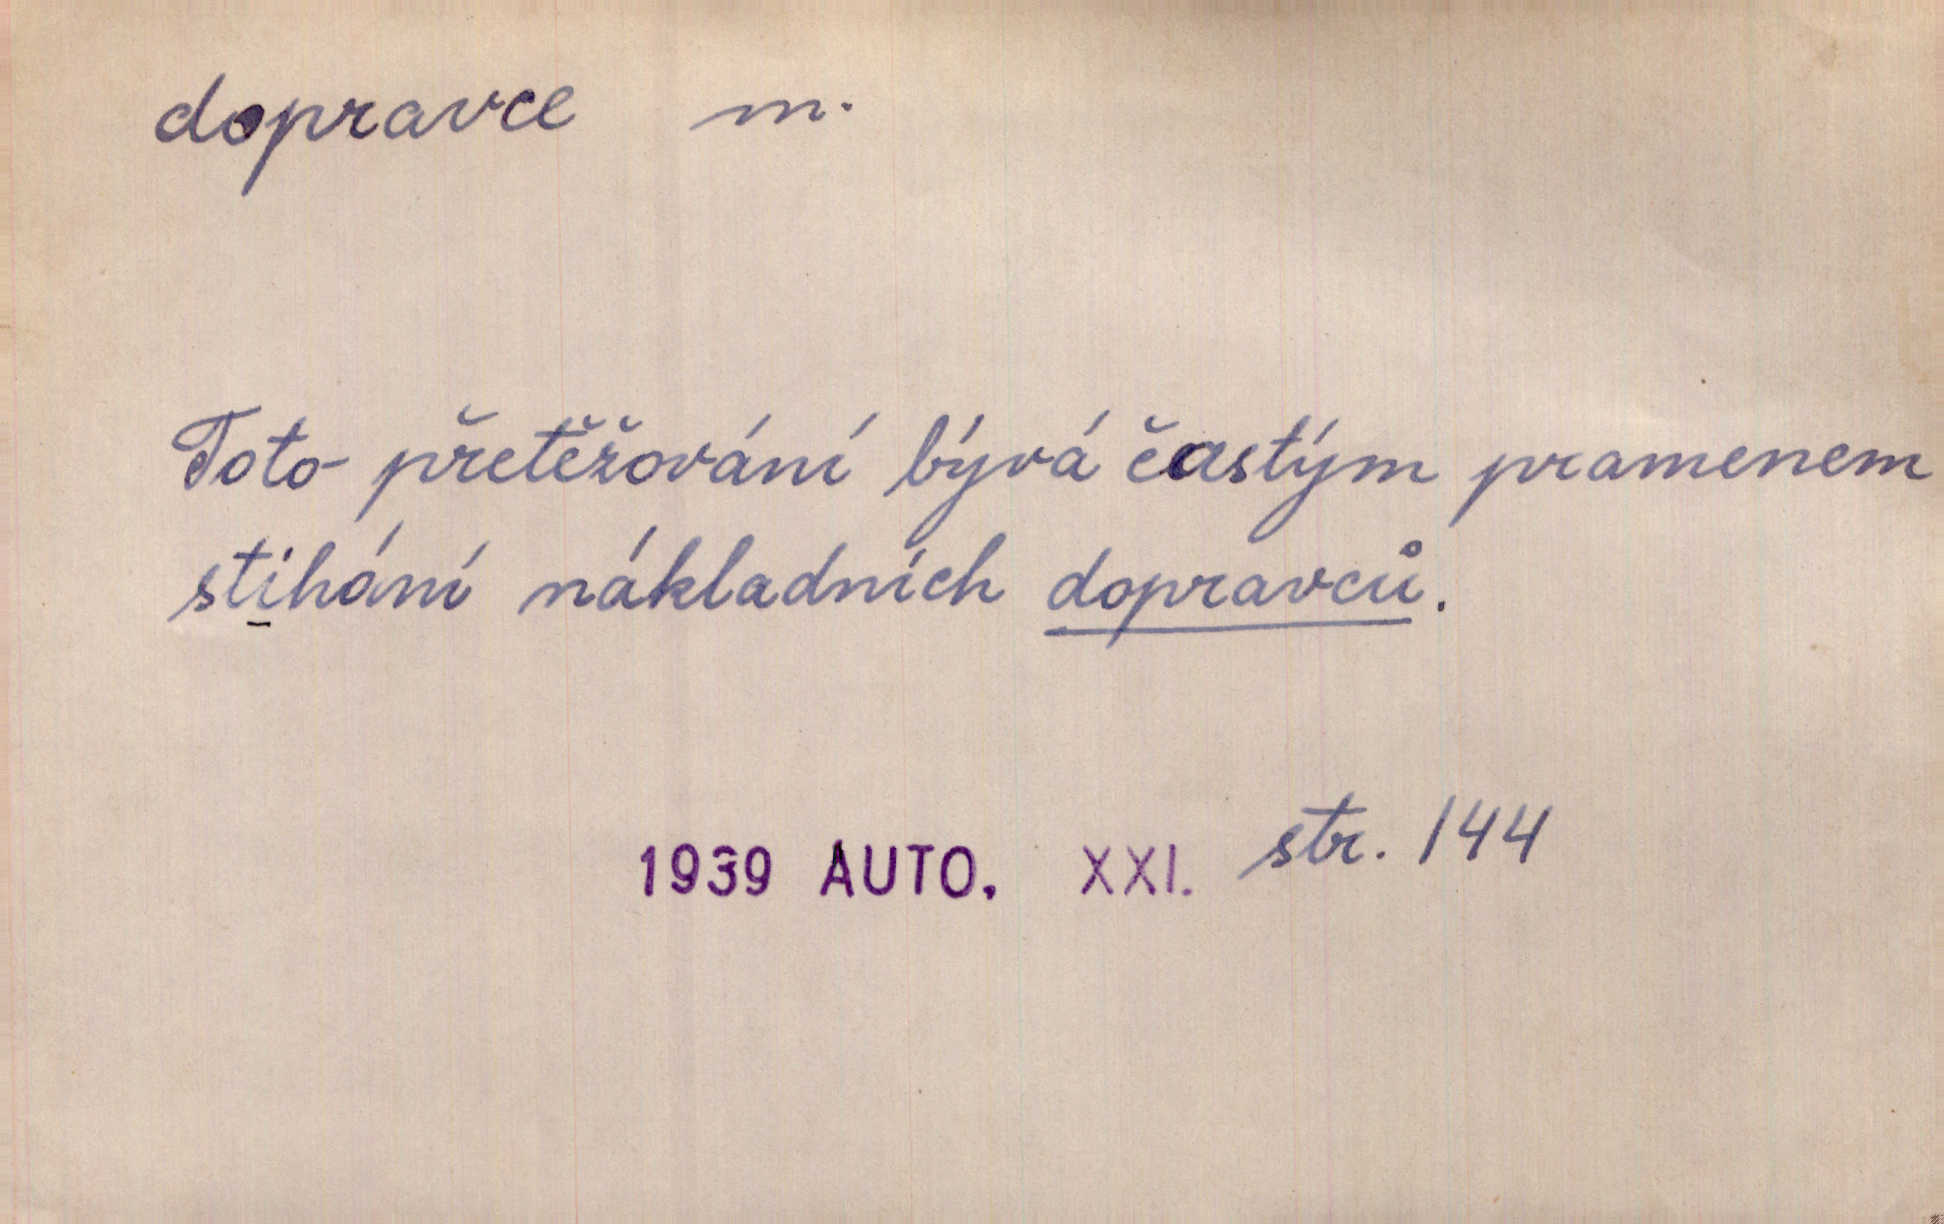 dopravce m.
Toto přetěžování bývá častým pramenem
stihání nákladních dopravců.
1939 AUTO. XXI. str. 144